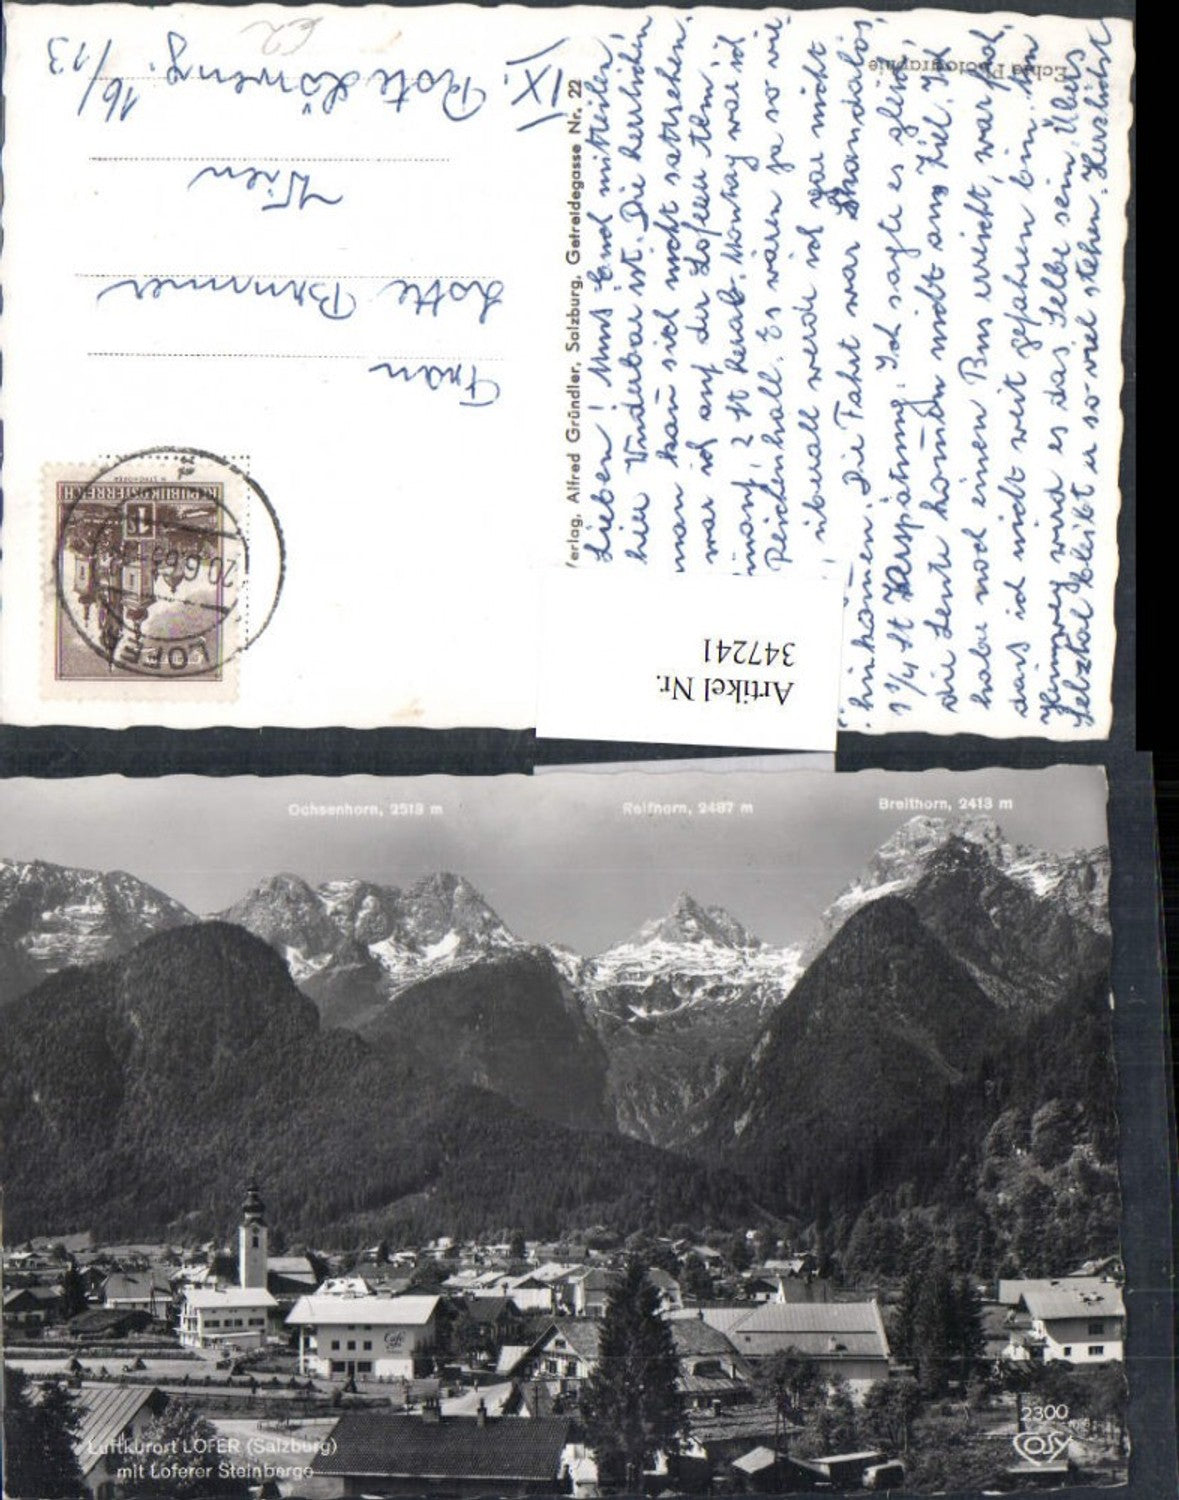 Lieben! Muss Euch mitteilen
hier Wuderbar ist. Die herrlichen
man kañ sich nicht sattsehen.
war ich auf der Loferer
2 St herab. Montag war ich
Reichenhall. Es wären ja so vie-
überall werde ich gar nicht
hinkom̄en. Die Fahrt war Skandalös
1 1/4 St Verspätung. Ich sagte es gleich
die Leute kom̄en nicht ans Ziel. Ich
habe noch einen Bus erreicht, war froh
dass ich nicht weit gefahren bin. Am
Heimweg wird es das Selbe sein. Übers
Selztal bleibt er so viel stehen. Herzlichst
Echte Photographie
Verlag, Alfred Gründler, Salzburg, Getreidegasse Nr. 22
Frau
Lotte Brunner
Wien
IX. Rote Löweng. 16/
/13
62
REPUBLIK ÖSTERREICH
1 S
LOFER
20.6.63
Artikel Nr.
347241
Ochsenhorn, 2513 m
Reifhorn, 2487 m
Breithorn, 2413 m
Café
Luftkurort LOFER (Salzburg)
mit Loferer Steinberge
2300
COSY